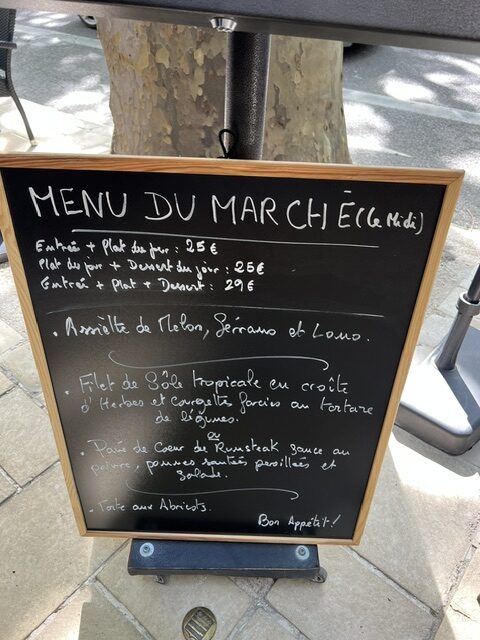 MENU DU MARCHÉ (Le Midi)
Entrée + Plat du jour : 25 €
Plat du jour + Dessert du jour : 25 €
Entrée + Plat + Dessert : 29 €
. Assiette de Melon, Serrano et Lomo.
. Filet de Sôle tropicale en croûte
d'Herbes et courgette farcies au tartare
de légumes.
ou
. Pavé de Coeur de Rumsteak sauce au
poivre, pommes sautées persillées et
salade.
. Tarte aux Abricots.
Bon Appétit !